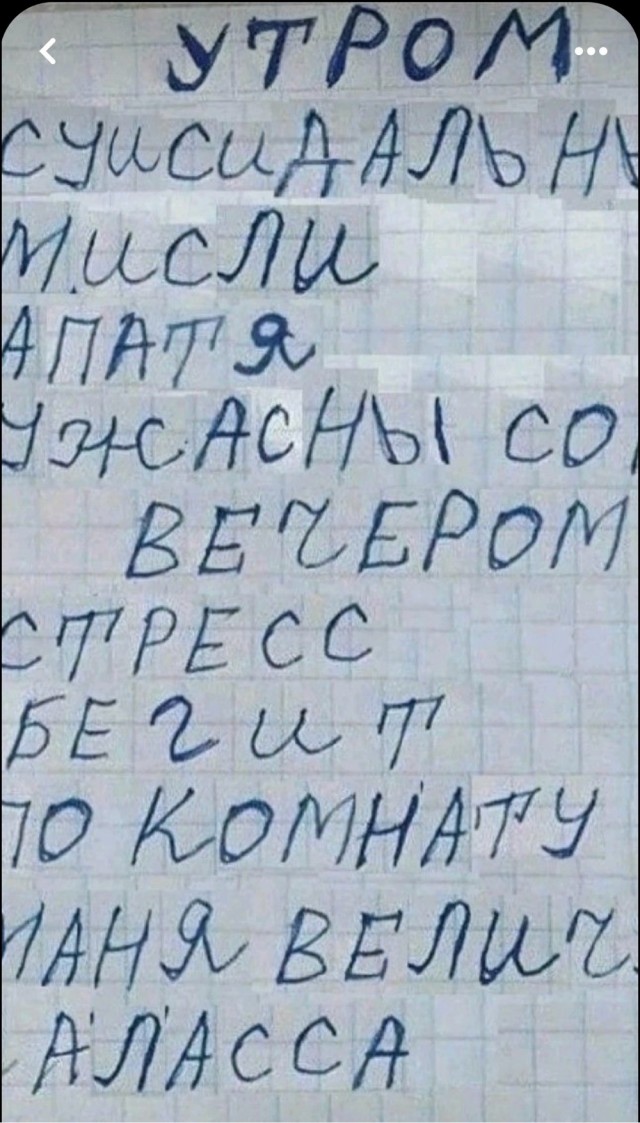 УТРОМ
СУИСИДАЛЬНЫ
МИСЛИ
АПАТЯ
УЖАСНЫ СО
ВЕЧЕРОМ
СТРЕСС
БЕГИТ
ПО КОМНАТУ
МАНЯ ВЕЛИЧ
АЛАССА